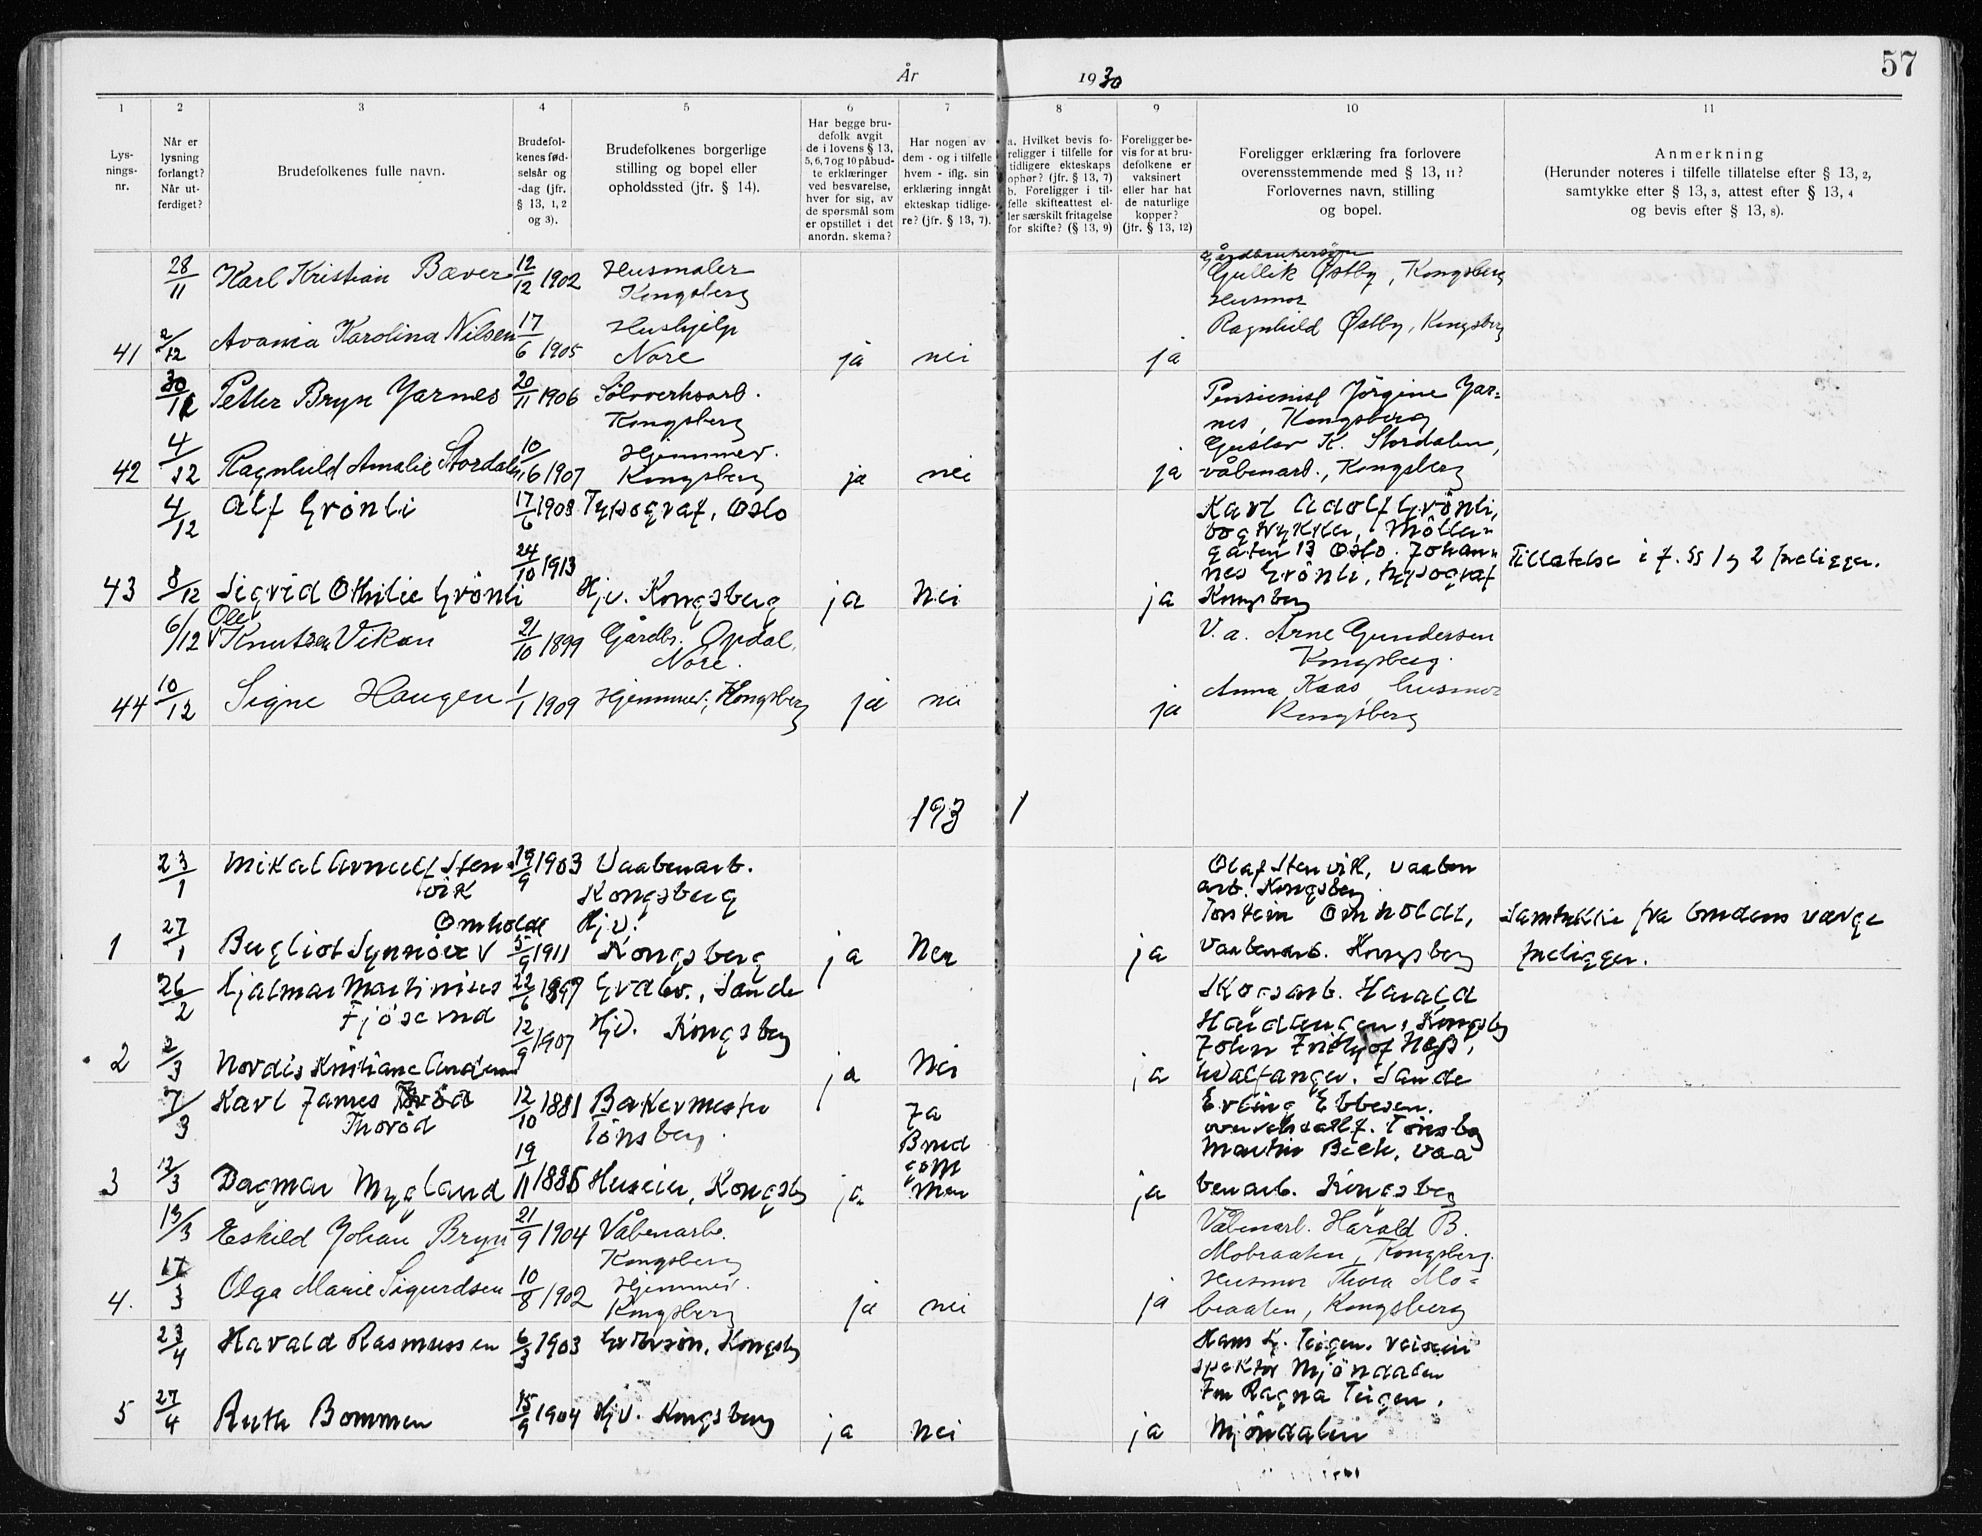 57
År 1930
1 2 3 4 5 6 7 8 9 10 11
Lysnings-nr.
Når er lysning forlangt? Når utferdiget?
Brudefolkenes fulle navn.
Brudefolkenes fødselsår og -dag (jfr. § 13, 1, 2 og 3).
Brudefolkenes borgerlige stilling og bopel eller opholdssted (jfr. § 14).
Har begge brudefolk avgit de i lovens § 13, 5, 6, 7 og 10 påbudte erklæringer ved besvarelse, hver for sig, av de spørsmål som er opstillet i det anordn. skema?
Har nogen av dem - og i tilfelle hvem - iflg. sin erklæring inngått ekteskap tidligere? (jfr. § 13, 7).
a. Hvilket bevis foreligger i tilfelle for tidligere ekteskaps ophør? (jfr. § 13, 7)
b. Foreligger i tilfelle skifteattest eller særskilt fritagelse for skifte? (§ 13, 9)
Foreligger bevis for at brudefolkene er vaksinert eller har hat de naturlige kopper? (jfr. § 13, 12)
Foreligger erklæring fra forlovere overensstemmende med § 13, 11? Forlovernes navn, stilling og bopel.
Anmerkning
(Herunder noteres i tilfelle tillatelse efter § 13, 2, samtykke efter § 13, 3, attest efter § 13, 4 og bevis efter § 13, 8).
28/11 Karl Kristian Bæver 12/12 1902 Husmaler Kongsberg
Gårdbrukersøn
Gullik Østby, Kongsberg
Husmor
Ragnhild Østby, Kongsberg
41 2/12 Avania Karolina Nilsen 17/6 1905 Hushjelp Nore ja nei ja
30/11 Petter Bryn Jarnes 20/11 1906 Sølvverksarb. Kongsberg
Pensionist Jörgine Jar=
nes, Kongsberg
Gustav K. Stordalen,
42 4/12 Ragnhild Amalie Stordalen 10/6 1907 Hjemmev. Kongsberg ja nei ja våbenarb., Kongsberg
4/12 Alf Grönli 17/6 1908 Typograf, Oslo
Karl Adolf Grönli,
bogtrykker, Möller-
gaten 13 Oslo. Johan-
nes Grönli, typograf
Kongsberg
Tillatelse i f. §§ 1 og 2 foreligger.
43 8/12 Sigrid Othilie Grönli 24/10 1913 Hjv. Kongsberg ja Nei ja
Ole
6/12 V Knutsen Vikan 21/10 1899 Gårdbr. Opdal, Nore.
V. a. Arne Gundersen
Kongsberg.
44 10/12 Signe Haugen 1/1 1909 Hjemmev., Kongsberg ja nei ja
Anna Kaas husmor
Kongsberg
1931
23/1 Mikal Arnulf Stenvik 19/9 1903 Vaabenarb. Kongsberg
Olaf Stenvik, vaaben
arb. Kongsberg.
Torstein Omholdt,
Omholdt
1 27/1 Bugliot Synnöve V 5/9 1911 Hjv. Kongsberg ja Nei ja Vaabenarb. Kongsberg
Samtykke fra brudens værge
foreligger.
26/2 Hjalmar Martinius Fjösernd 22/6 1897 Grdbr., Sande
Skogsarb. Harald
Haudlengen, Kongsbg
John Fridtjof Næss,
2 2/3 Nordis Kristiane Andersen 12/9 1907 Hjv. Kongsberg ja Nei ja hvalfanger. Sande
7/3 Karl James Thoröd 12/10 1881 Bakermester Tönsberg.
Ja
Brud
gom
men
Erling Ebbesen.
overrettssakf. Tönsbg
Martin Beck, vaa
3 12/3 Dagmar Mygland 19/11 1885 Huseier, Kongsbg ja ja benarb. Kongsberg
13/3 Eskild Johan Bryn 21/9 1904 Våbenarb. Kongsberg
Våbenarb. Harald B.
Mobraaten, Kongsberg.
Husmor Thora Mo=
4. 17/3 Olga Marie Sigurdsen 10/8 1902 Hjemmev. Kongsberg ja nei ja braaten, Kongsberg
23/4 Harald Rasmussen 6/3 1903 Kongsbg
Hans K. Teigen. veisin
spektör Mjöndalen
Fru Ragna Teigen,
5 27/4 Ruth Bommen 15/9 1904 Hjv. Kongsberg ja Nei ja Mjöndalen